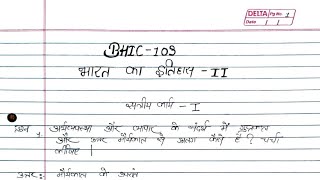 DELTA Pg No. 1
Date
BHIC-103
भारत का इतिहास - II
सत्रीय कार्य - I
प्रश्न अर्थव्यवस्था और व्यापार के संदर्भ में
और उत्तर मौर्यकाल से अलग कैसे है? चर्चा
कीजिए |
उत्तर: मौर्यकाल के